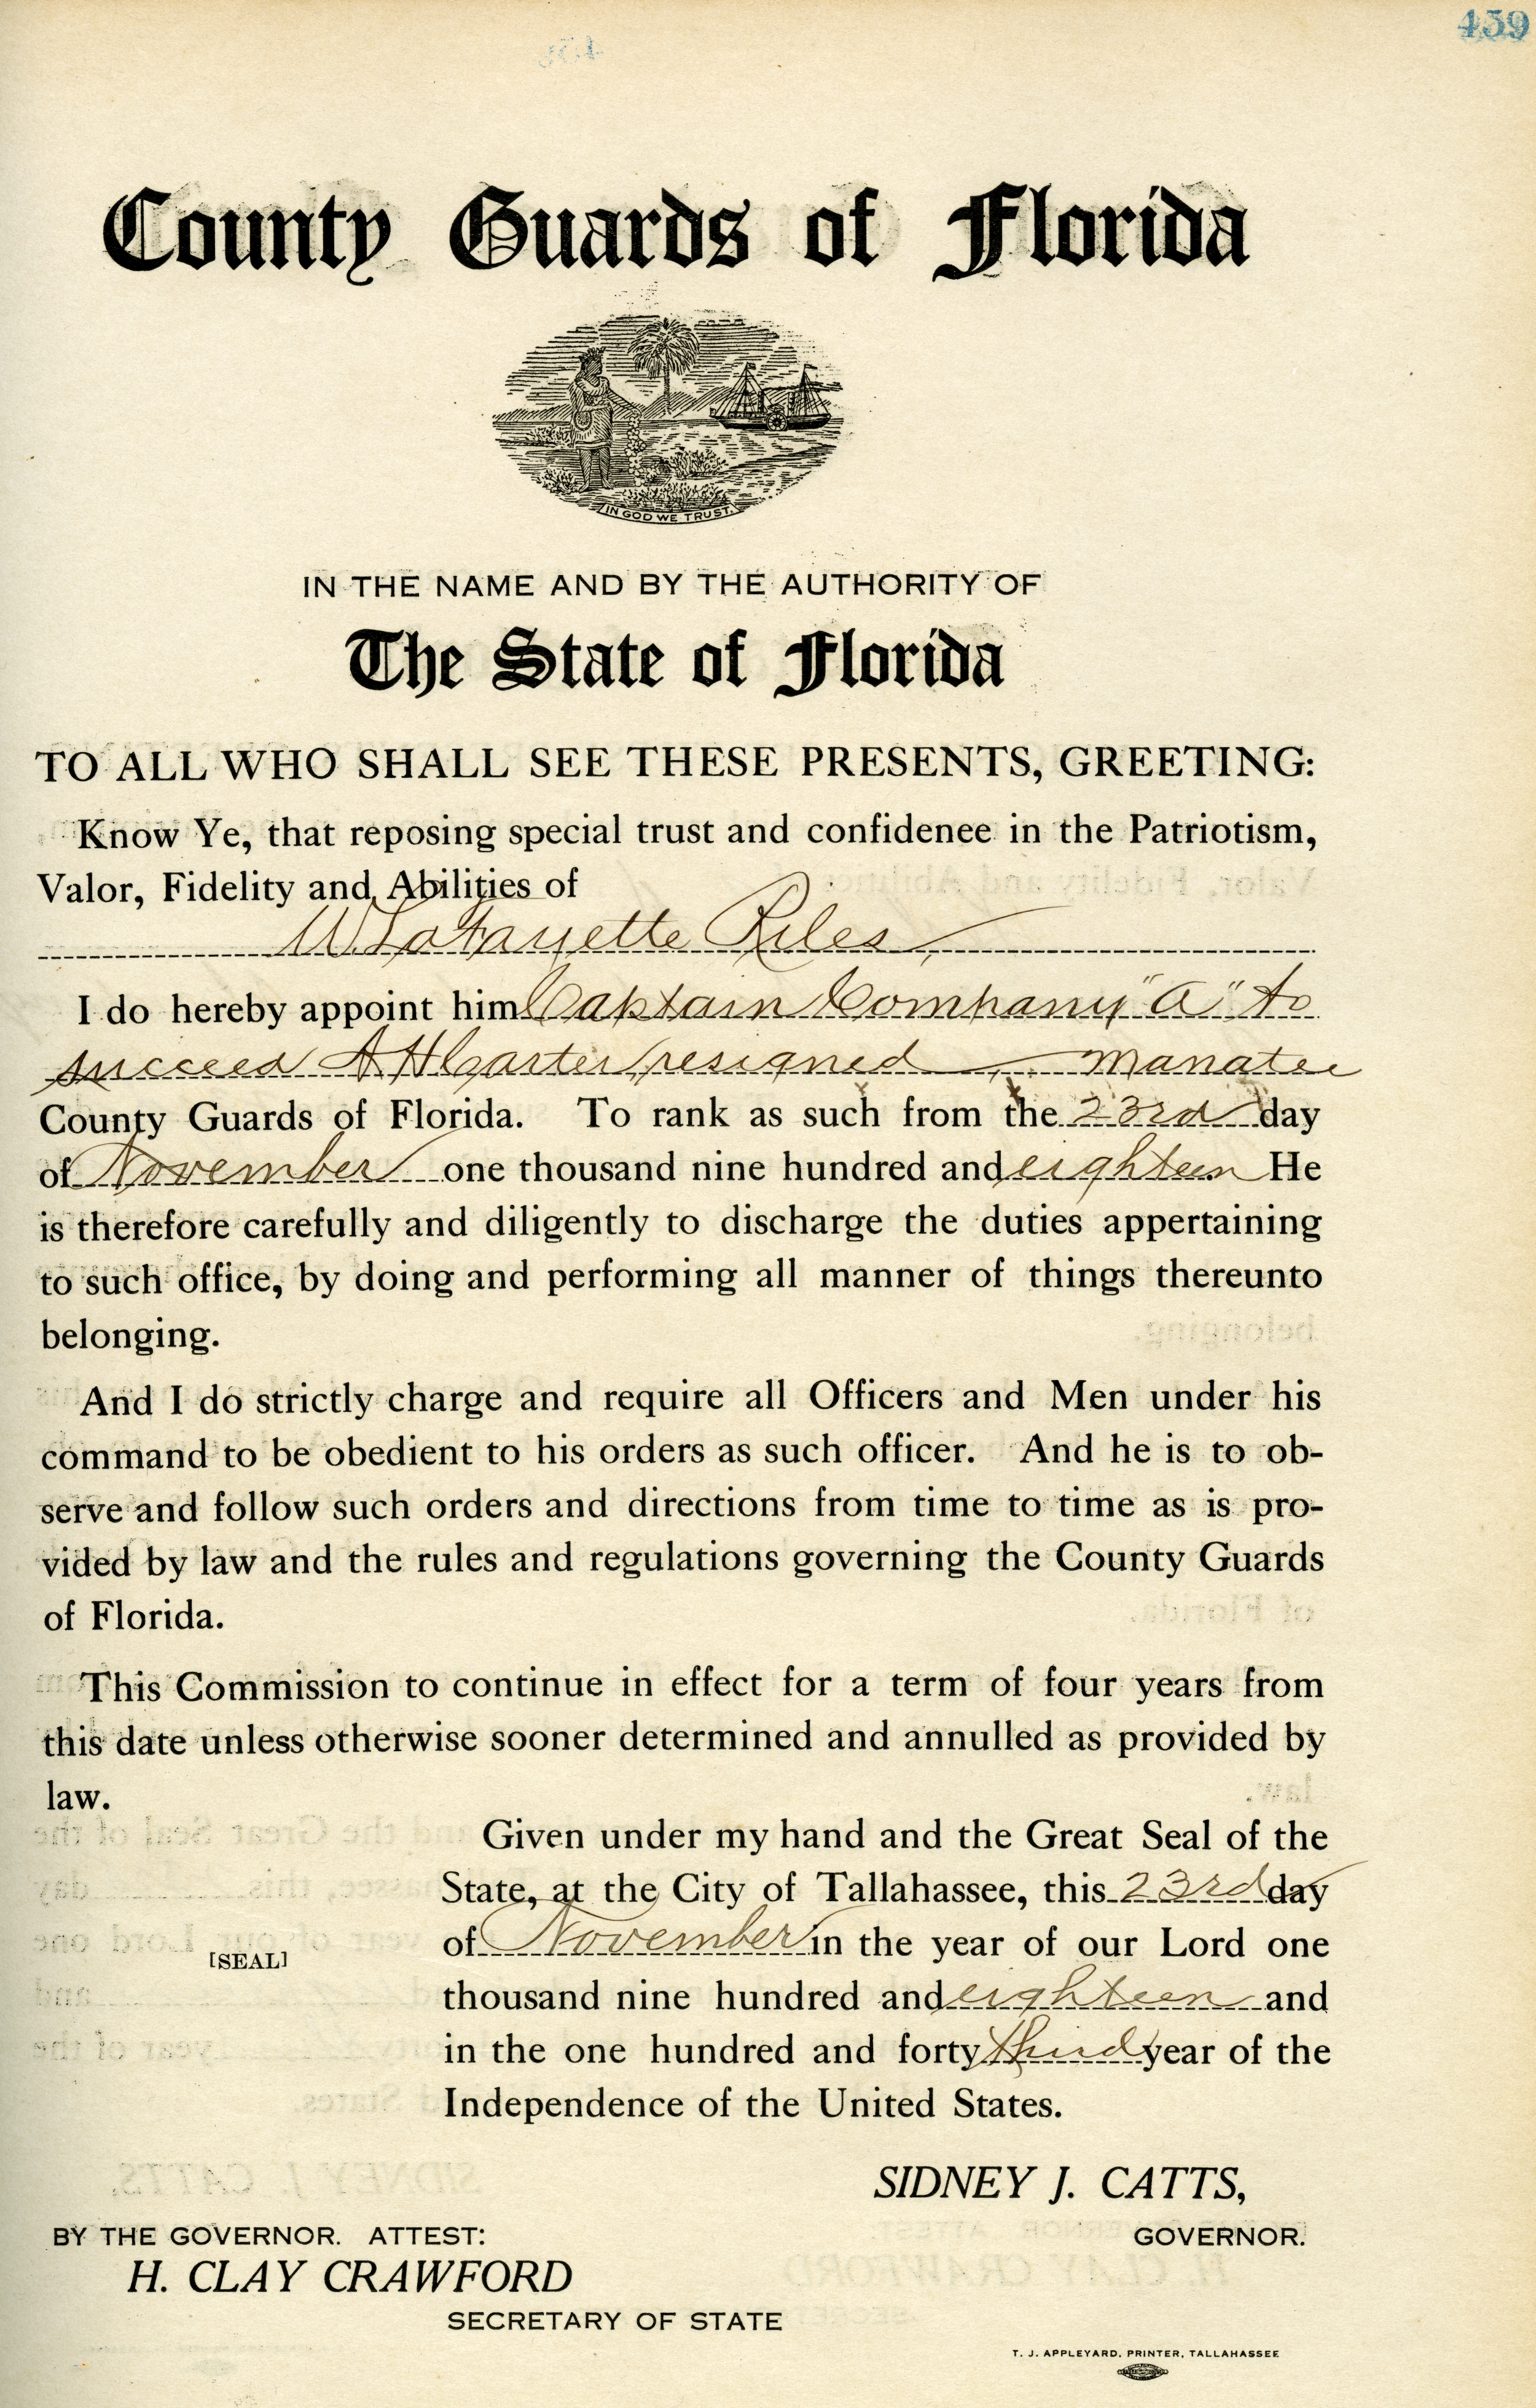 459
County Guards of Florida
IN GOD WE TRUST.
IN THE NAME AND BY THE AUTHORITY OF
The State of Florida
TO ALL WHO SHALL SEE THESE PRESENTS, GREETING:
Know Ye, that reposing special trust and confidenee in the Patriotism,
Valor, Fidelity and Abilities of
W LaFayette Riles
I do hereby appoint him Captain Company "A" to
succeed A H Carter, resigned Manatee
County Guards of Florida. To rank as such from the 23rd day
of November one thousand nine hundred and eighteen He
is therefore carefully and diligently to discharge the duties appertaining
to such office, by doing and performing all manner of things thereunto
belonging.
And I do strictly charge and require all Officers and Men under his
command to be obedient to his orders as such officer. And he is to ob-
serve and follow such orders and directions from time to time as is pro-
vided by law and the rules and regulations governing the County Guards
of Florida.
This Commission to continue in effect for a term of four years from
this date unless otherwise sooner determined and annulled as provided by
law.
Given under my hand and the Great Seal of the
State, at the City of Tallahassee, this 23rd day
of November in the year of our Lord one
[SEAL]
thousand nine hundred and eighteen and
in the one hundred and forty third year of the
Independence of the United States.
SIDNEY J. CATTS,
BY THE GOVERNOR. ATTEST: GOVERNOR.
H. CLAY CRAWFORD
SECRETARY OF STATE
T. J. APPLEYARD, PRINTER, TALLAHASSEE